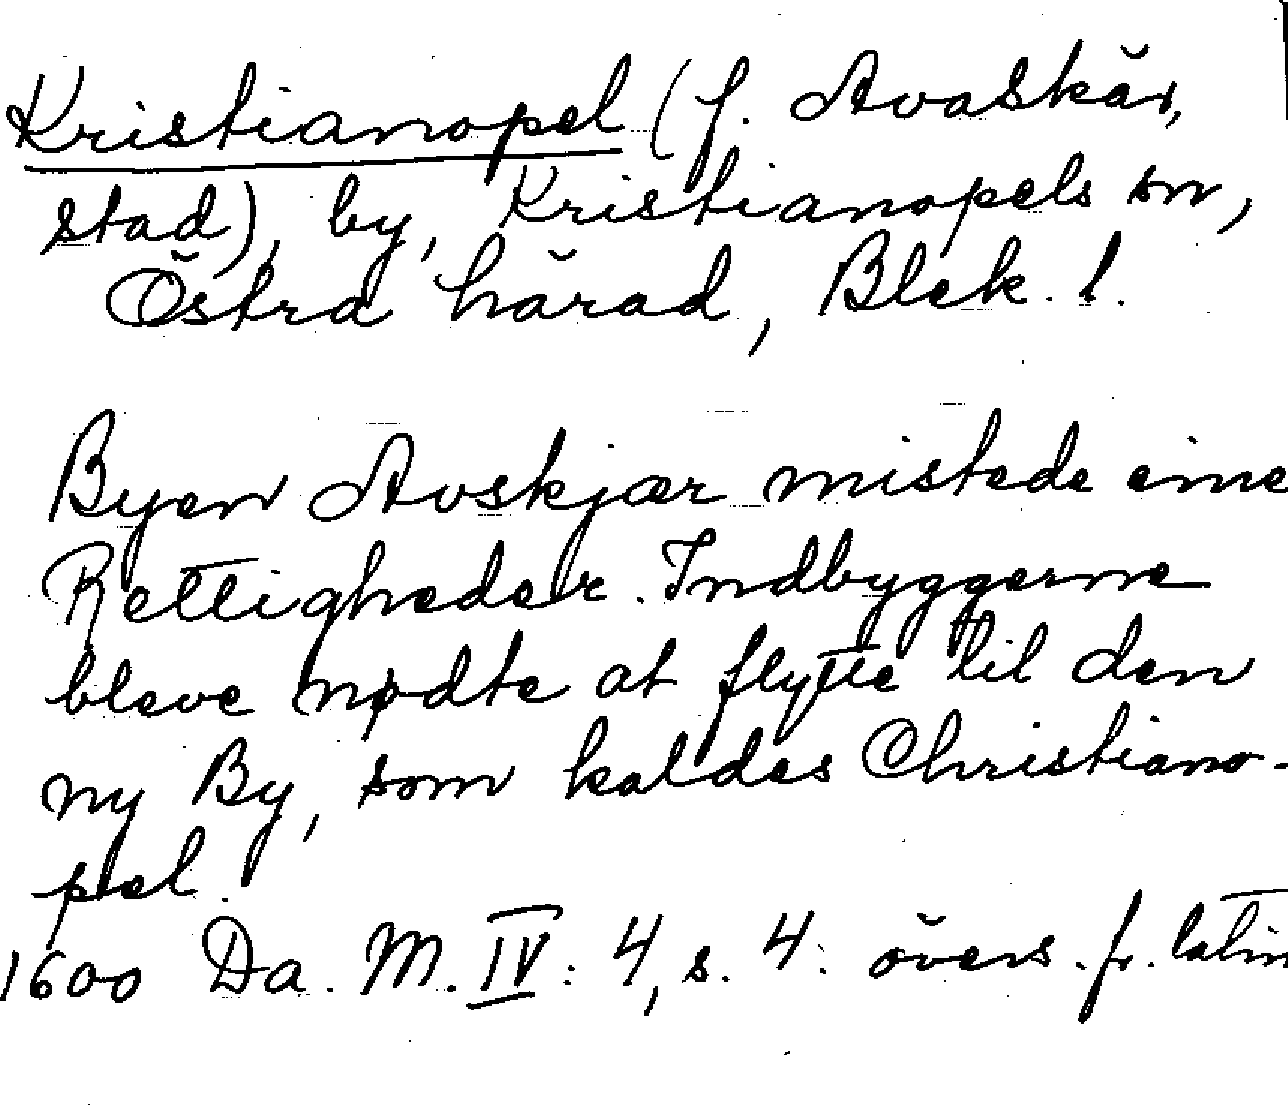 Kristianopel (f. Avaskär,
stad), by, Kristianopels sn,
Östra härad, Blek. l.
Byen Avskjær mistede sine
Rettigheder. Indbyggerne
bleve nødte at flytte til den
ny By, som kaldes Christiano-
pel.
1600 Da. M. IV: 4, s. 4. övers. fr. latin